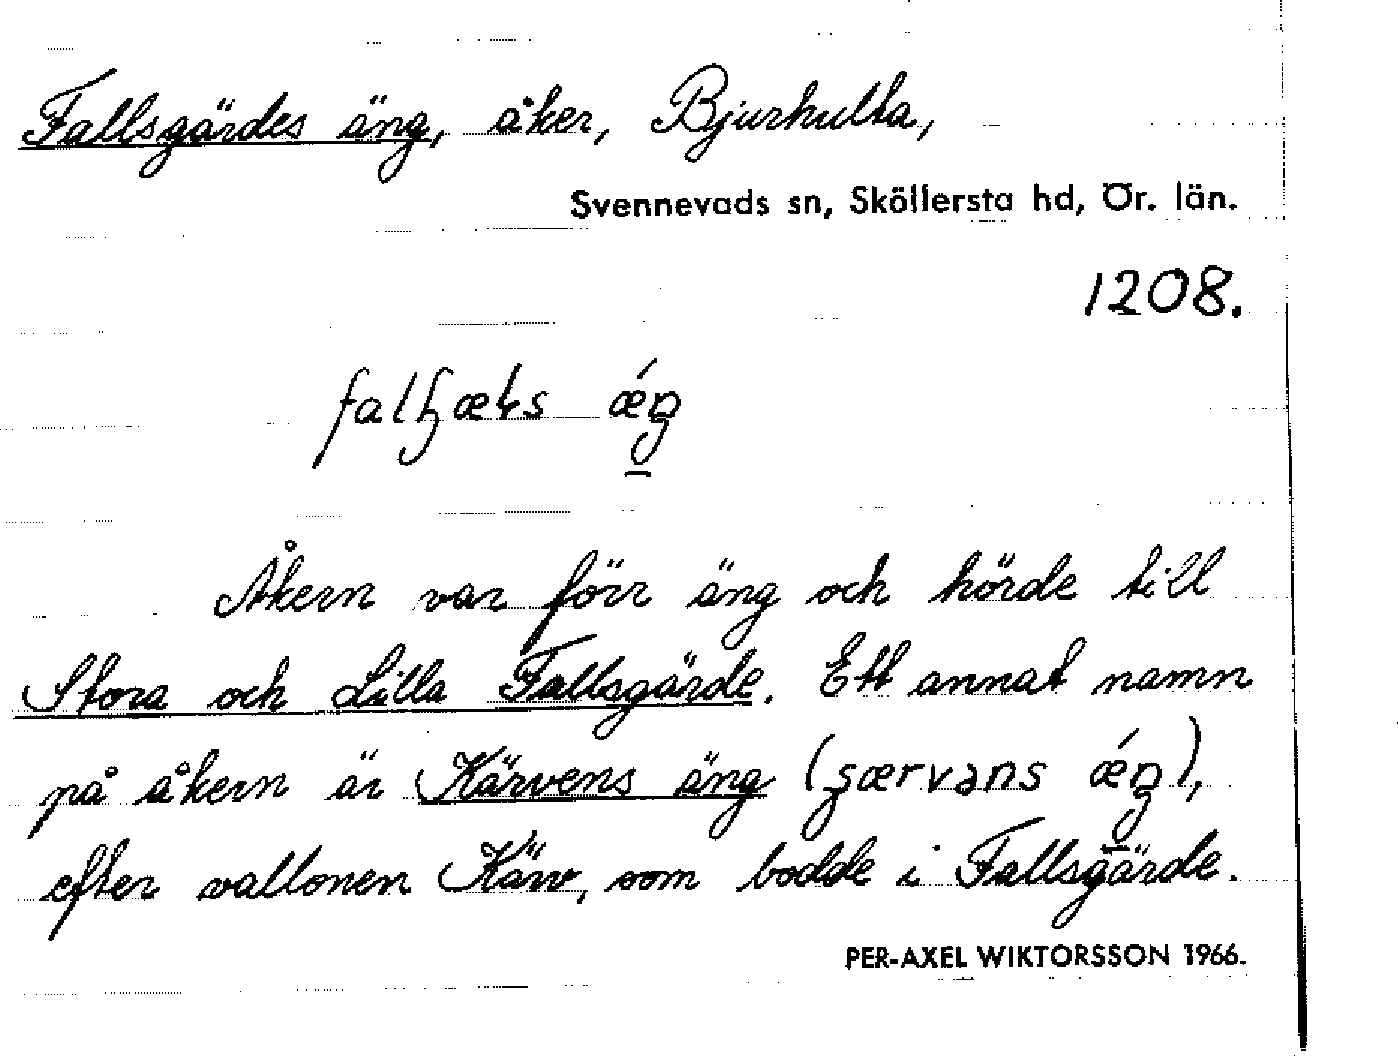 Fallsgärdes äng, åker, Bjurhulta,
Svennevads sn, Sköllersta hd, Ör. län.
1208.
Åkern var förr äng och hörde till
Stora och Lilla Fallsgärde. Ett annat namn
på åkern är Kärvens äng
efter vallonen Kärv, som bodde i Fallsgärde.
PER-AXEL WIKTORSSON 1966.